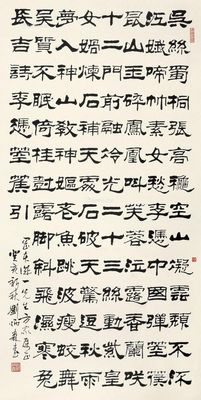 吳絲蜀桐張高秋空山凝雲頹不流
江娥啼竹素女愁李憑中國彈箜篌
崑山玉碎鳳凰叫芙蓉泣露香蘭笑
十二門前融冷光二十三絲動紫皇
女媧煉石補天處石破天驚逗秋雨
夢入神山教神嫗老魚跳波瘦蛟舞
吳質不眠倚桂樹露腳斜飛濕寒兔
長吉詩李憑箜篌引
先生方家
癸亥初秋劉炳森書